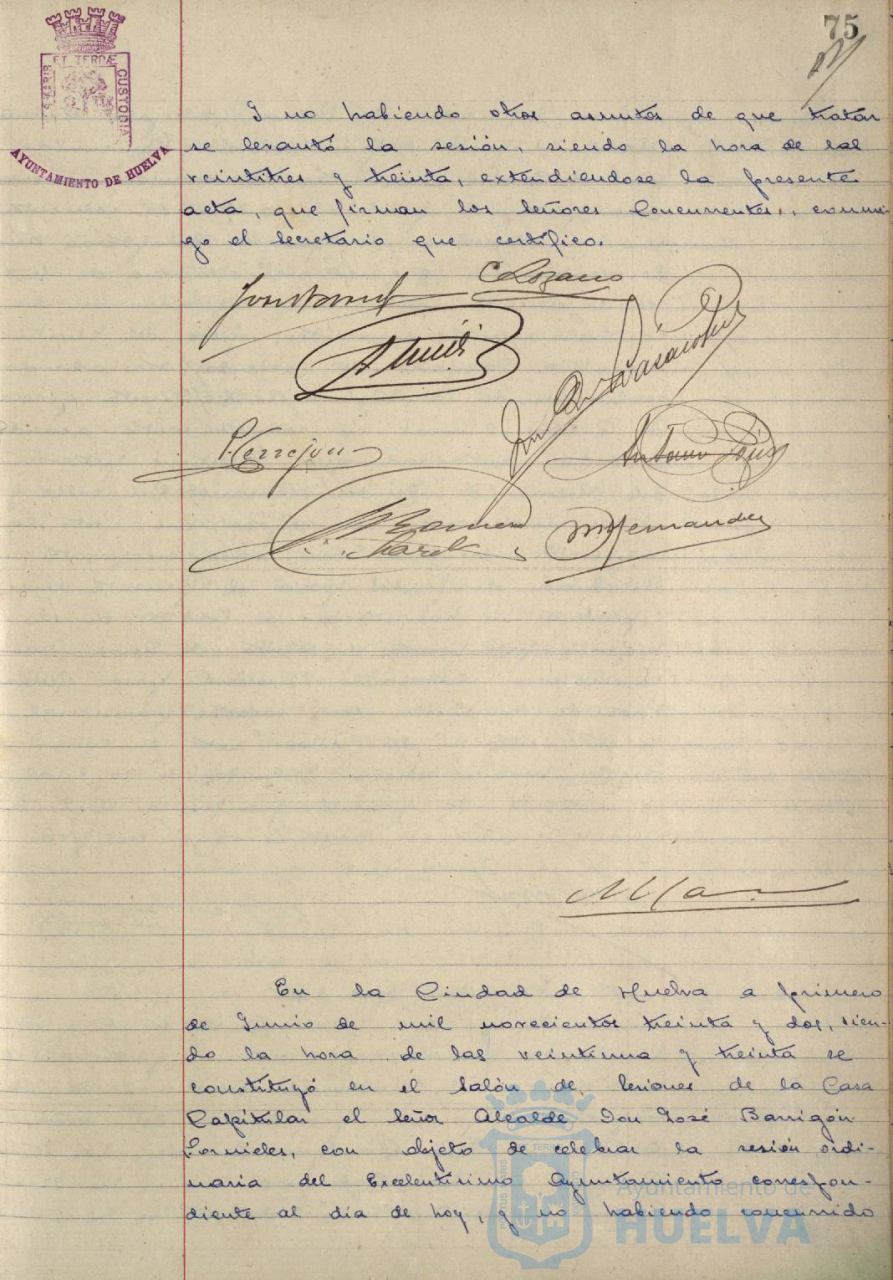 75
ET TERRÆ
CUSTODIA
AYUNTAMIENTO DE HUELVA
Y no habiendo otros asuntos de que tratar
se levantó la sesión, siendo la hora de las
veintitres y treinta, extendiendose la presente
acta, que firman los Señores Concurrentes, conmi-
go el Secretario que certifico.
C Lozano
P. Cerrejon
Antonio
M Hernandez
En la Ciudad de Huelva a primero
de Junio de mil novecientos treinta y dos, sien-
do la hora de las veintiuna y treinta se
constituyó en el Salón de Sesiones de la Casa
Capitular el Señor Alcalde Don José Barrigón
Fornieles, con objeto de celebrar la sesión ordi-
naria del Excelentísimo Ayuntamiento correspon-
diente al día de hoy, y no habiendo concurrido
Ayuntamiento de
HUELVA